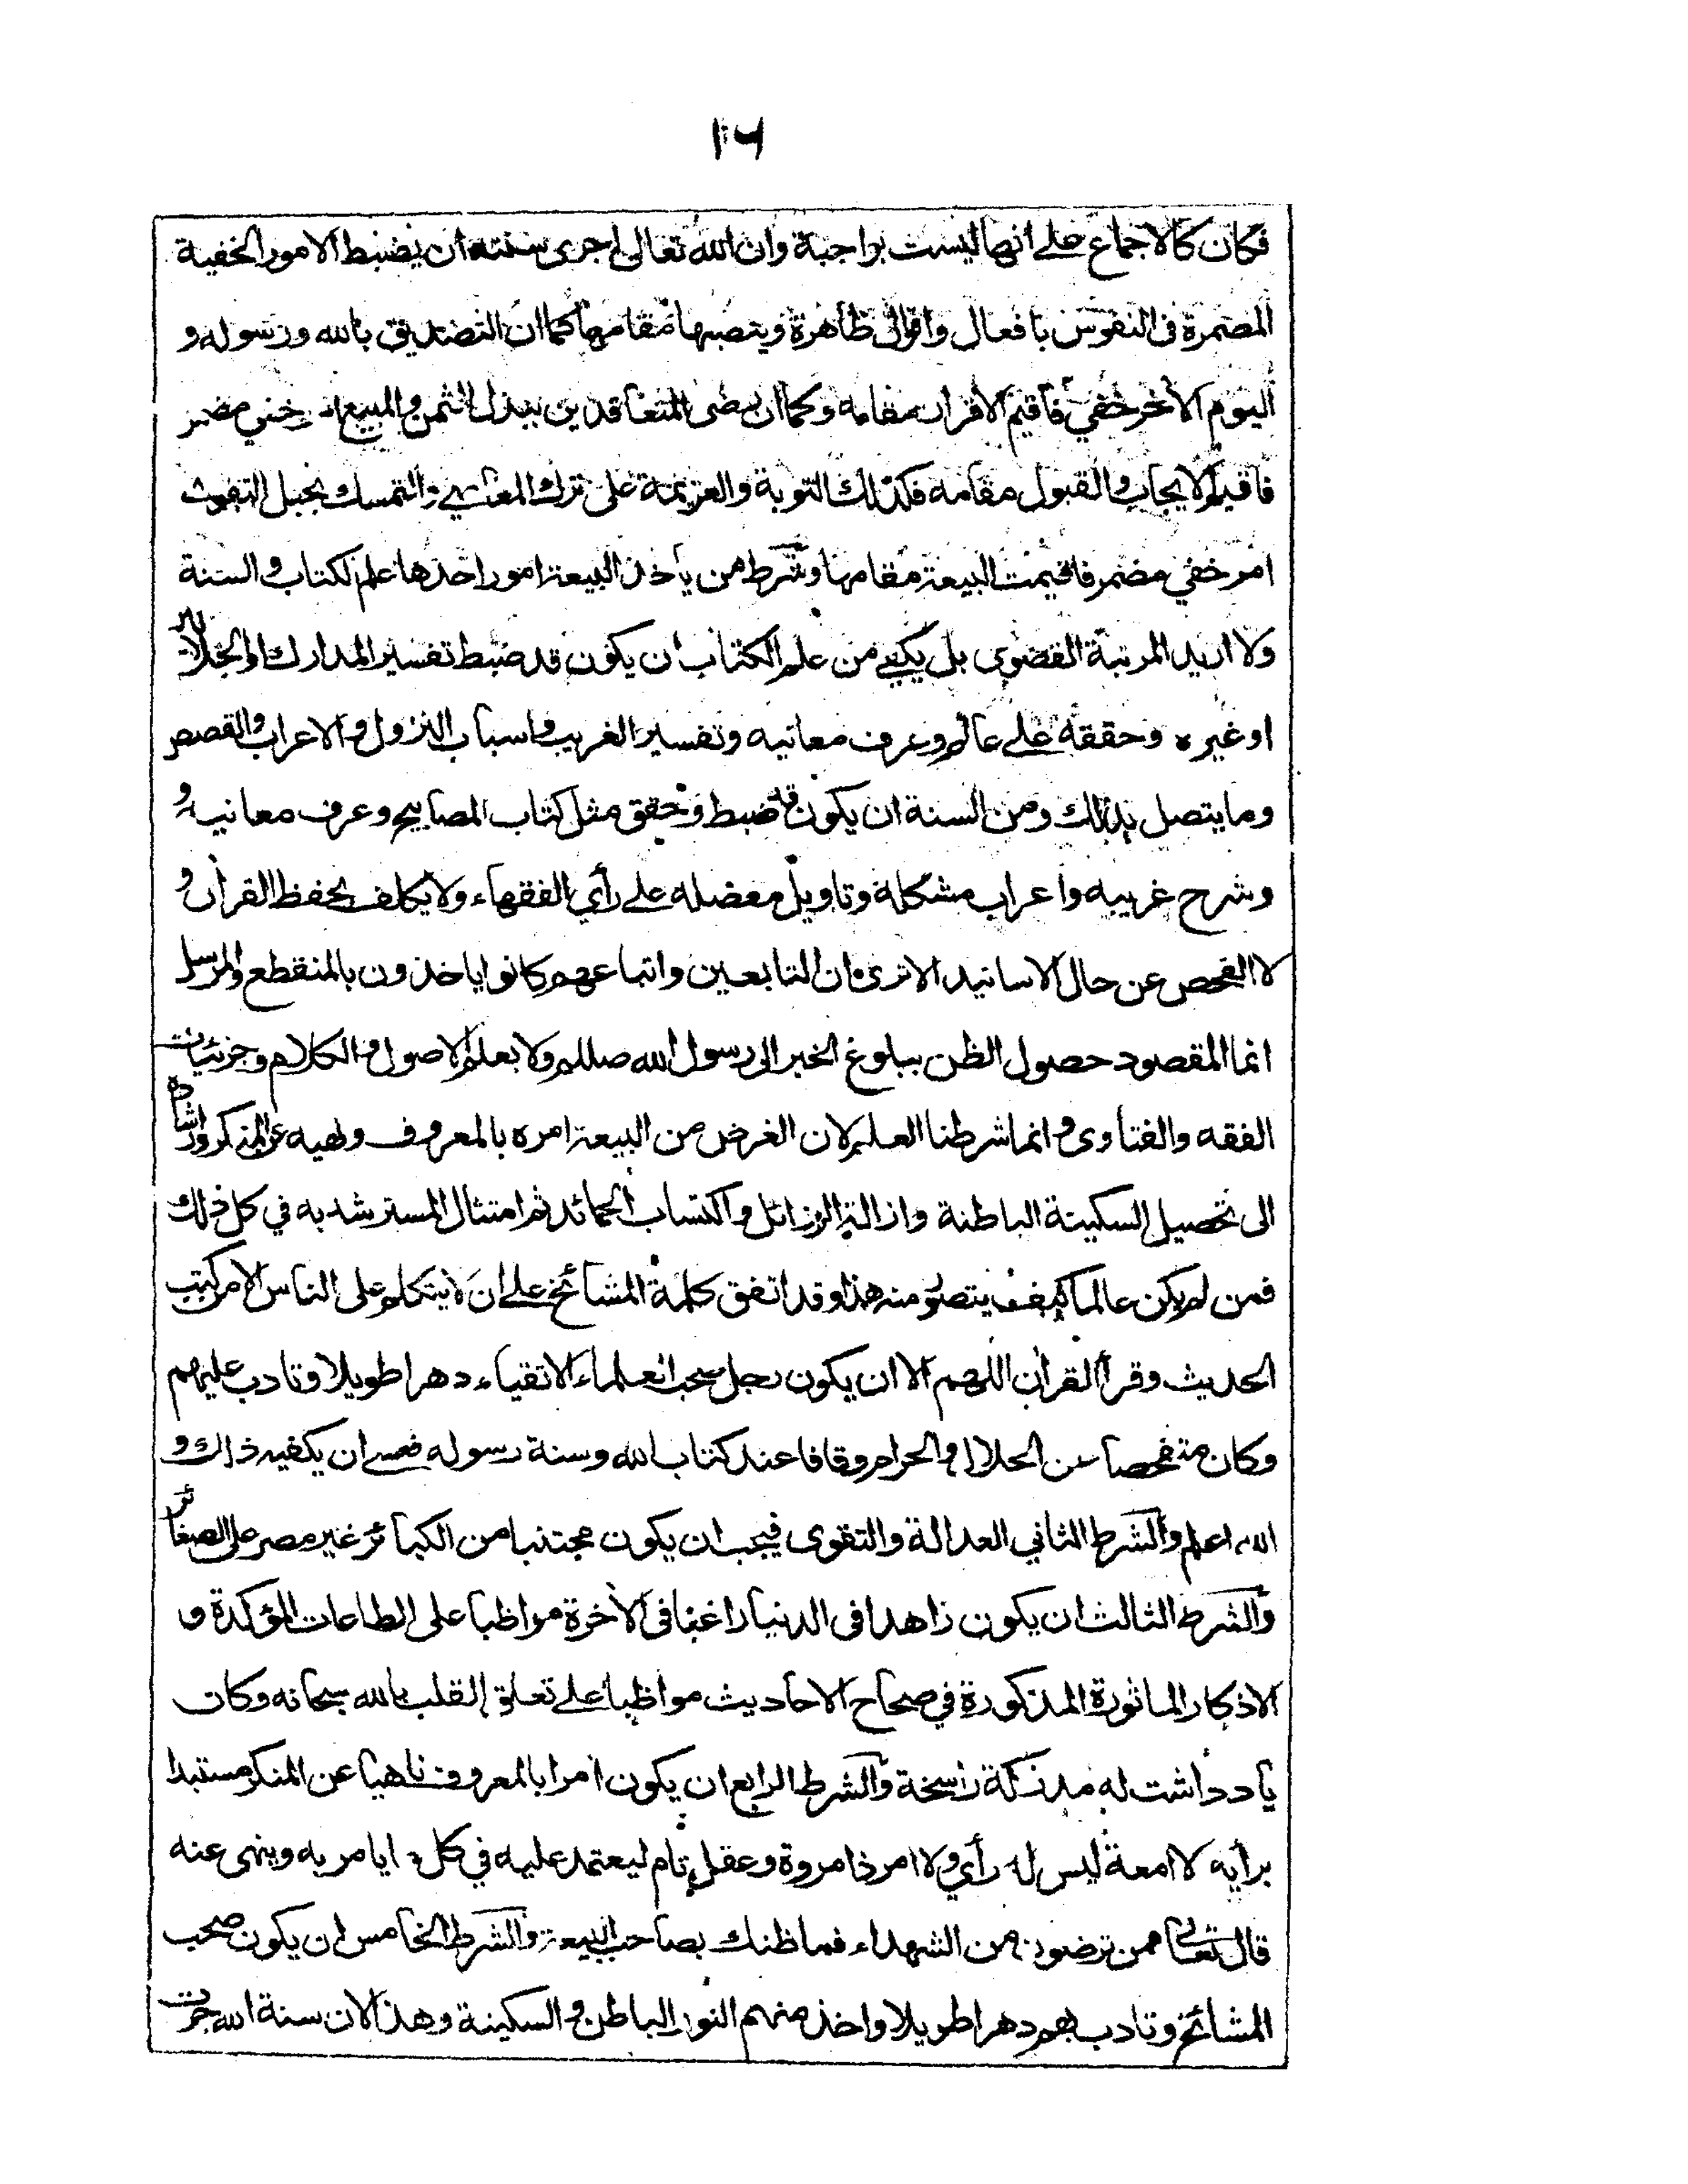 ١٦
فكان كالاجماع على انها ليست بواجبة وان الله تعالى اجرى سنته ان يضبط الامور الخفية
المضمرة فى النفوس بافعال واقوال ظاهرة وينصبها مقامها كما ان التصديق بالله ورسوله و
اليوم الاخر خفي فاقيم الاقرار مقامه وكما ان رضى المتعاقدين ببذل الثمن والمبيع امر خفي مضمر
فاقيم الايجاب والقبول مقامه فكذلك التوبة والعزيمة على ترك المعاصي والتمسك بحبل التقوى
امر خفي مضمر فاقيمت البيعة مقامها وشرط من ياخذ البيعة امور احدها علم الكتاب والسنة
ولا اريد المرتبة القصوى بل يكفي من علم الكتاب ان يكون قد ضبط تفسير المدارك او الجلالين
او غيره وحققه على عالم وعرف معانيه وتفسير الغريب واسباب النزول والاعراب والقصص
وما يتصل بذلك ومن السنة ان يكون قد ضبط وحقق مثل كتاب المصابيح وعرف معانيه و
وشرح غريبه واعراب مشكلة وتاويل معضله على رأي الفقهاء ولا يكلف بحفظ القرأن و
لا الفحص عن حال الاسانيد الا ترى ان التابعين واتباعهم كانوا ياخذون بالمنقطع والمرسل
انما المقصود حصول الظن ببلوغ الخبر الى رسول الله صللم ولا بعلم الاصول والكلام وجزئيات
الفقه والفتاوى وانما شرطنا العلم لان الغرض من البيعة امره بالمعروف ونهيه عن المنكر وارشاده
الى تحصيل السكينة الباطنة وازالة الرذائل واكتساب الحمائد ثم امتثال المسترشد به في كل ذلك
فمن لم يكن عالما كيف يتصور منه هذا وقد اتفق كلمة المشائخ على ان لا يتكلم على الناس الا من كتب
الحديث وقرأ القرأن اللهم الا ان يكون رجل صحب العلماء الاتقياء دهرا طويلا وتادب عليهم
وكان متفحصا عن الحلال والحرام وقافا عند كتاب الله وسنة رسوله فعسى ان يكفيه ذلك و
الله اعلم والشرط الثاني العدالة والتقوى فيجب ان يكون مجتنبا من الكبائر غير مصر على الصغائر
والشرط الثالث ان يكون زاهدا فى الدنيا راغبا فى الاخرة مواظبا على الطاعات المؤكدة و
الاذكار الماثورة المذكورة في صحاح الاحاديث مواظبا على تعلق القلب بالله سبحانه وكان
يادداشت له ملكة راسخة والشرط الرابع ان يكون امرا بالمعروف ناهيا عن المنكر مستبدا
برأيه لا امعة ليس له رأي ولا امر ذا مروة وعقل تام ليعتمد عليه في كل ما يامر به وينهى عنه
قال تعالى ممن ترضون من الشهداء فما ظنك بصاحب البيعة والشرط الخامس ان يكون صحب
المشائخ وتادب بهم دهرا طويلا واخذ منهم النور الباطن والسكينة وهذا لان سنة الله جرت